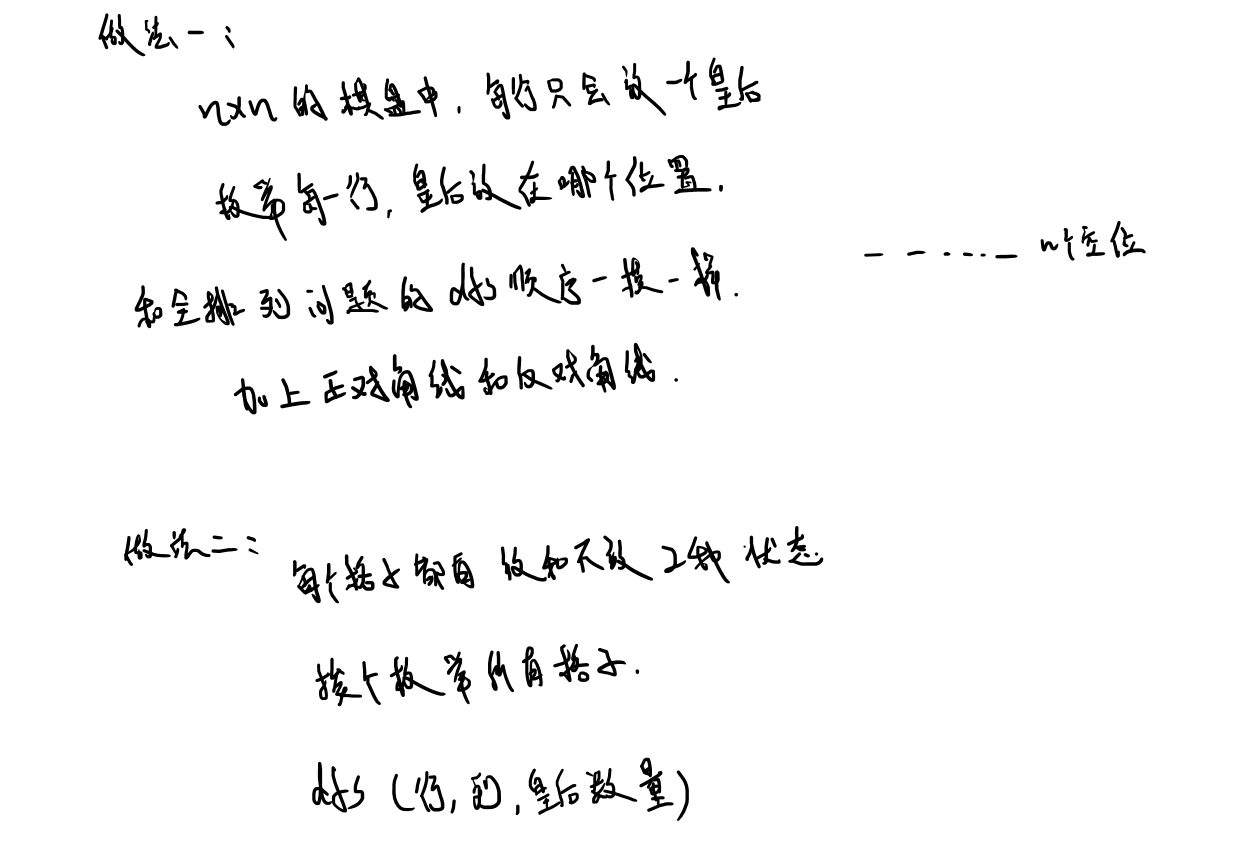 做法一：
n×n 的棋盘中，每行只会放一个皇后
枚举每一行，皇后放在哪个位置．
_ _ ..... _ n个空位
和全排列问题的 dfs 顺序一摸一样．
加上正对角线和反对角线．
做法二：
每个格子都有 放和不放 2种 状态．
挨个枚举所有格子．
dfs（行，列，皇后数量）